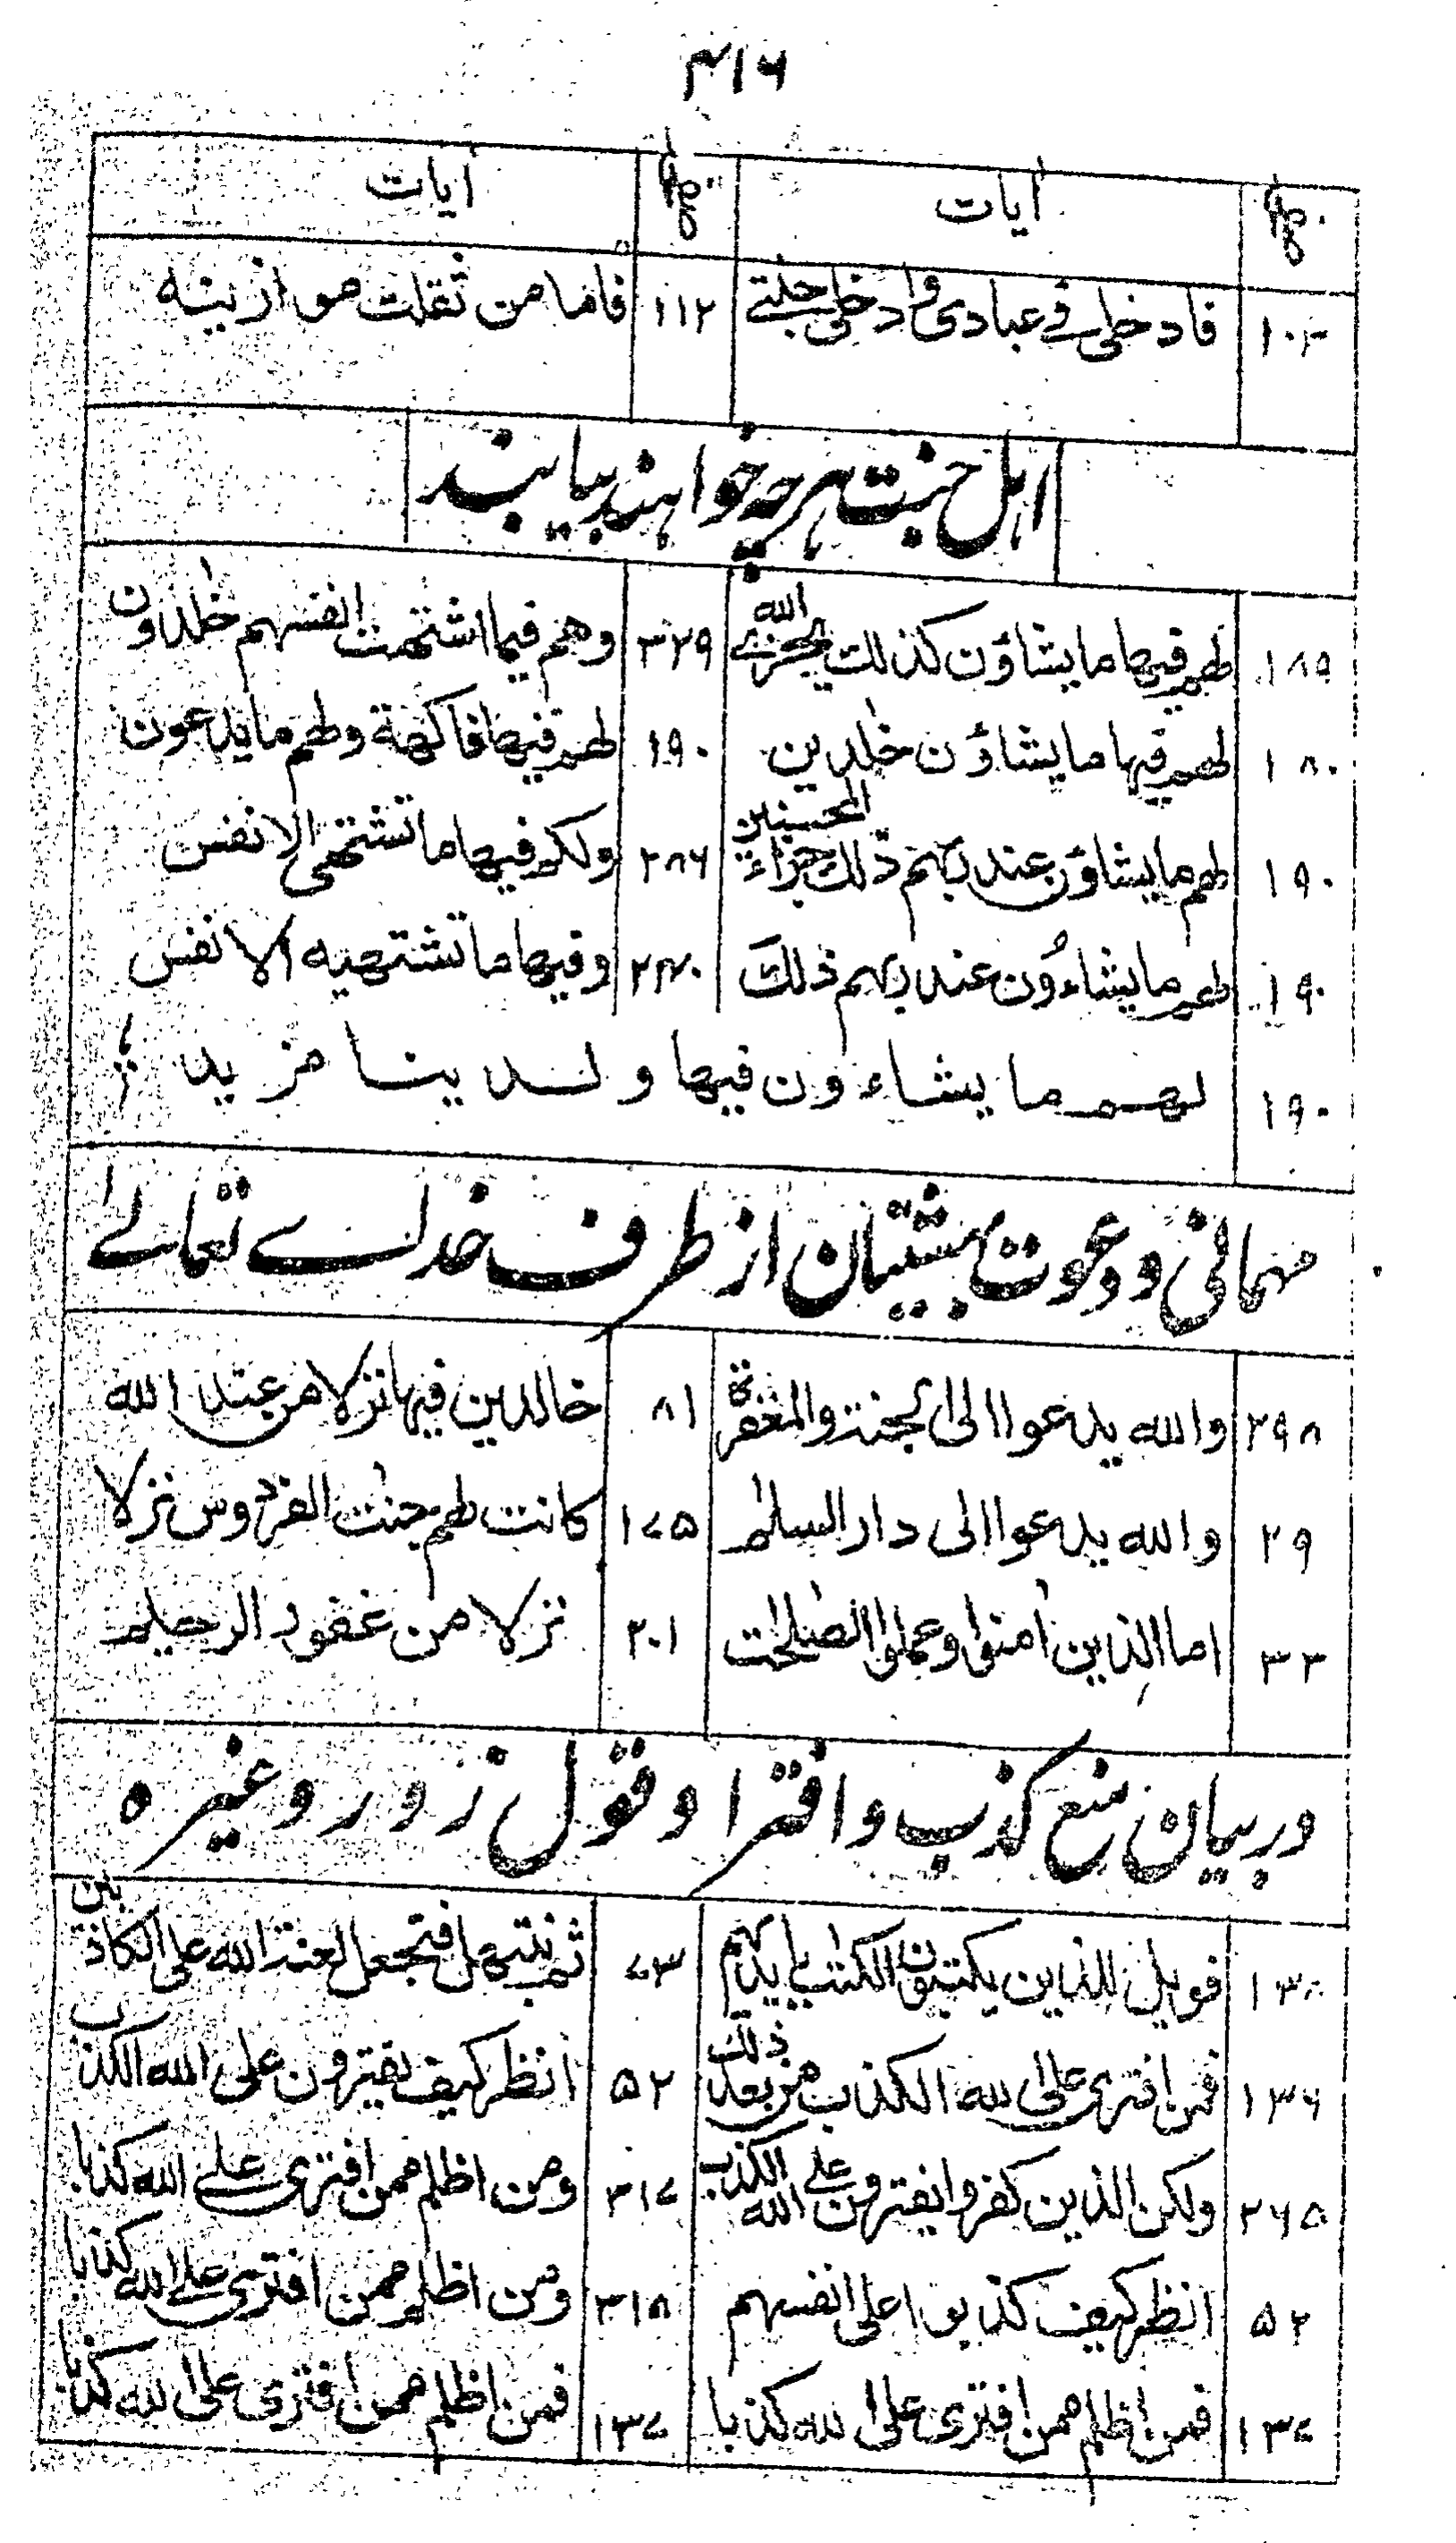 ۴۱۶
صفحہ آیات صفحہ آیات
۱۰۴ فادخلی فی عبادی وادخلی جنتی ۱۱۲ فاما من ثقلت موازینہ
اہل جنت ہرچہ خواہند بیابند
۱۸۵ لھم فیھا ما یشاؤن کذلک یجزی اللہ ۳۲۹ وھم فیما اشتھت انفسھم خٰلدون
۱۸۰ لھم فیہا ما یشاؤن خٰلدین ۱۹۰ لھم فیھا فاکھۃ ولھم ما یدعون
۱۹۰ لھم ما یشاؤن عند ربھم ذلک جزاء المحسنین ۲۸۶ ولکم فیھا ما تشتھی الانفس
۱۹۰ لھم ما یشاءُون عند ربھم ذلک ۲۴۰ وفیھا ما تشتھیہ الانفس
۱۹۰ لھم ما یشاءون فیھا ولدینا مزید
مہمانی و دعوت بہشتیان از طرف خداے تعالے
۲۹۸ واللہ یدعوا الی الجنۃ والمغفرۃ ۸۱ خالدین فیہا نزلا من عند اللہ
۲۹ واللہ یدعوا الی دار السلٰم ۱۷۵ کانت لھم جنٰت الفردوس نزلا
۳۳ اما الذین اٰمنوا وعملوا الصٰلحٰت ۲۰۱ نزلا من غفور الرحیم
دربیان منع کذب و افترا و قول زور وغیرہ
۱۳۸ فویل للذین یکتبون الکتٰب بایدیہم ۷۳ ثم نبتھل فنجعل لعنۃ اللہ علی الکاذبین
۱۳۶ فمن افتری علی اللہ الکذب من بعد ذلک ۵۲ انظر کیف یفترون علی اللہ الکذب
۲۶۵ ولکن الذین کفروا یفترون علی اللہ الکذب ۳۱۷ ومن اظلم ممن افتری علی اللہ کذبا
۵۲ انظر کیف کذبوا علی انفسہم ۳۱۸ ومن اظلم ممن افتری علی اللہ کذبا
۱۳۷ فمن اظلم ممن افتری علی اللہ کذبا ۱۳۷ فمن اظلم ممن افتری علی اللہ کذبا